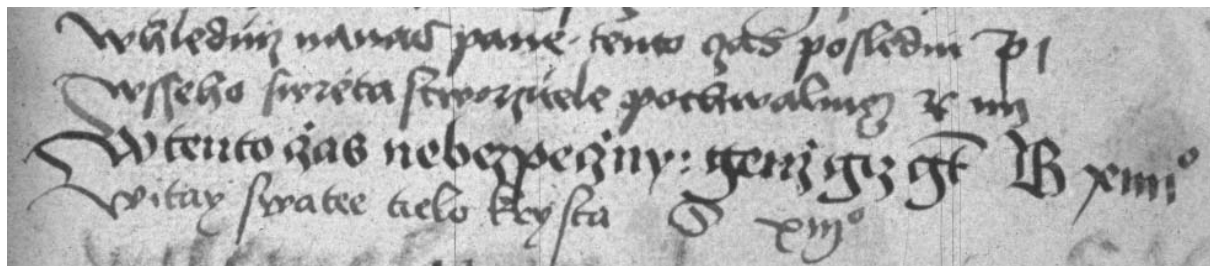 Whledniz nanas pane tento czas posledni P j
Wsseho swieta stworzitele pochwalmez R iiij
W tento czas nebezpeczny: genz giz gt B xiiii°
Witay swatee tielo krysta G xiij°